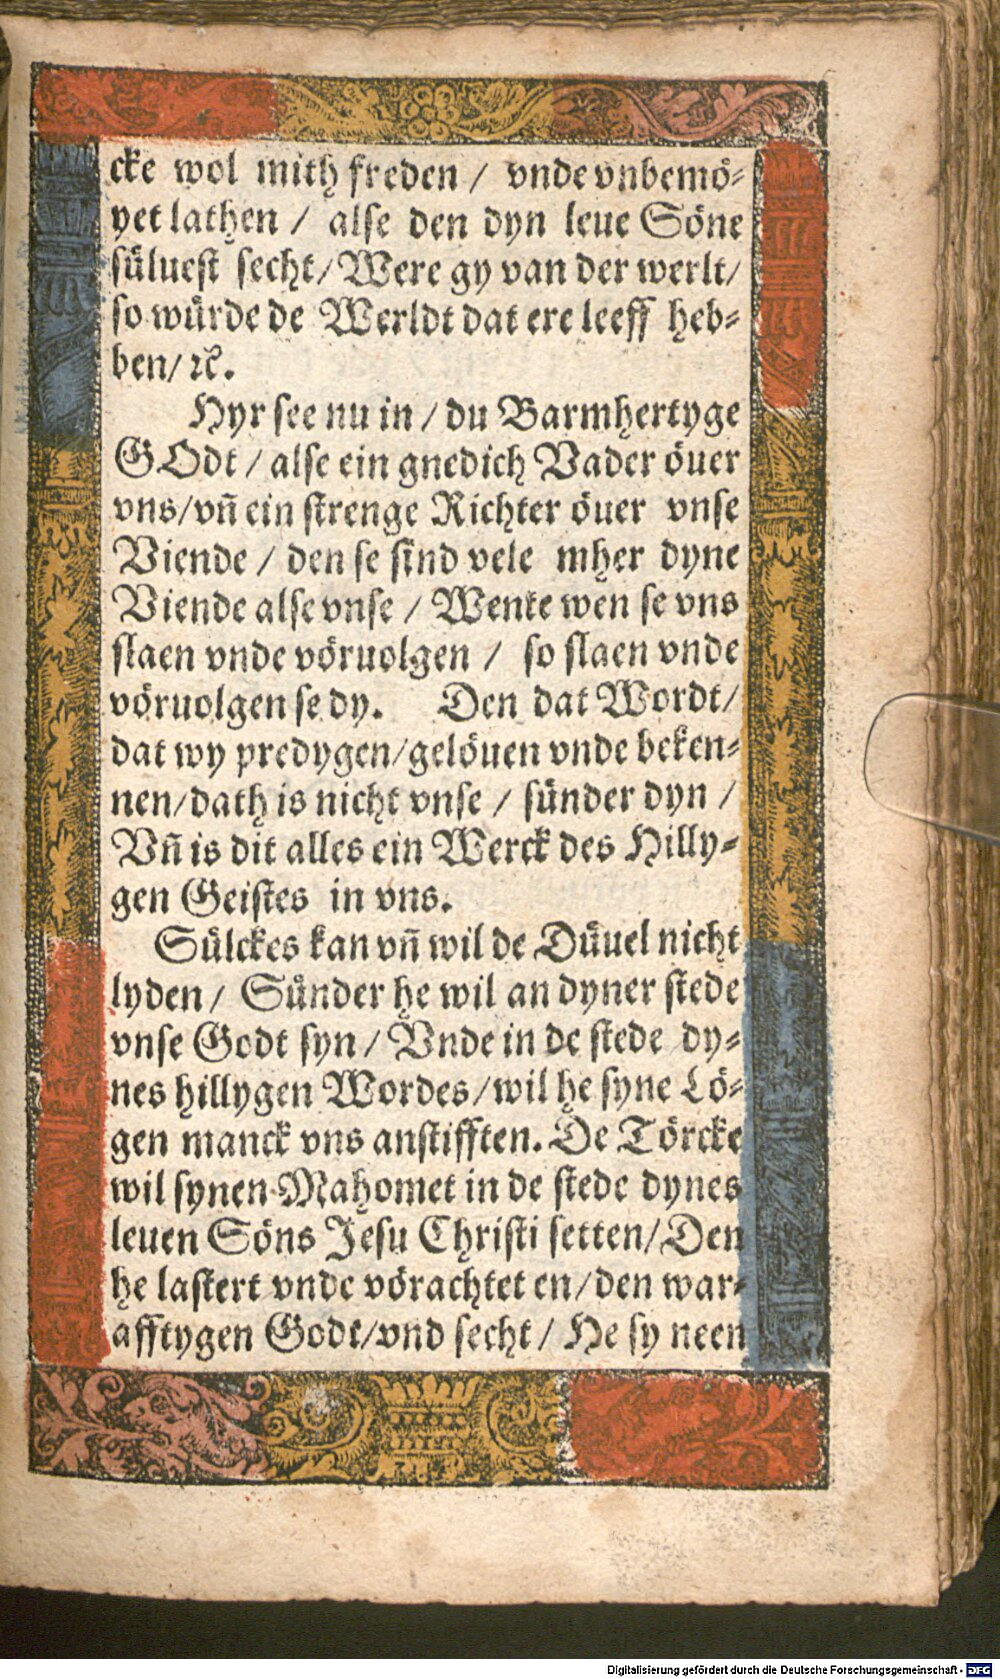 cke wol mith freden / vnde vnbemö-
yet lathen / alse den dyn leue Söne
süluest secht / Were gy van der werlt /
so würde de Werldt dat ere leeff heb-
ben / ꝛc.
Hyr see nu in / du Barmhertyge
GOdt / alse ein gnedich Vader öuer
vns / vñ ein strenge Richter öuer vnse
Viende / den se sind vele mher dyne
Viende alse vnse / Wente wen se vns
slaen vnde vöruolgen / so slaen vnde
vöruolgen se dy. Den dat Wordt /
dat wy predygen / gelöuen vnde beken-
nen / dath is nicht vnse / sünder dyn /
Vñ is dit alles ein Werck des Hilly-
gen Geistes in vns.
Sülckes kan vñ wil de Düuel nicht
lyden / Sünder he wil an dyner stede
vnse Godt syn / Vnde in de stede dy-
nes hillygen Wordes / wil he syne Lö-
gen manck vns anstifften. De Törcke
wil synen Mahomet in de stede dynes
leuen Söns Jesu Christi setten / Den
he lastert vnde vörachtet en / den war-
afftygen Godt / vnd secht / He sy neen
Digitalisierung gefördert durch die Deutsche Forschungsgemeinschaft - DFG